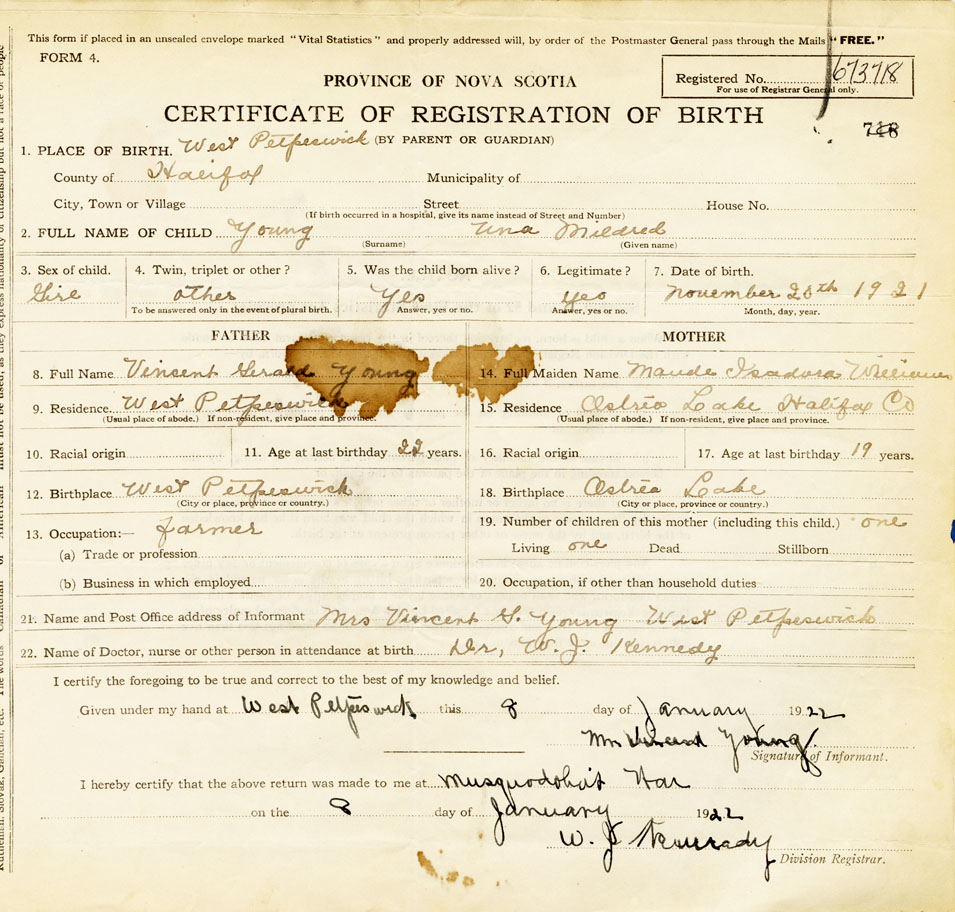 This form if placed in an unsealed envelope marked "Vital Statistics" and properly addressed will, by order of the Postmaster General pass through the Mails "FREE."
FORM 4.
Registered No. 673718
For use of Registrar General only.
PROVINCE OF NOVA SCOTIA
CERTIFICATE OF REGISTRATION OF BIRTH
718
(BY PARENT OR GUARDIAN)
1. PLACE OF BIRTH. West Petpeswick
County of Halifax Municipality of
City, Town or Village Street House No.
(If birth occurred in a hospital, give its name instead of Street and Number)
2. FULL NAME OF CHILD Young Una Mildred
(Surname) (Given name)
3. Sex of child. 4. Twin, triplet or other? 5. Was the child born alive? 6. Legitimate? 7. Date of birth.
Girl other Yes yes November 20th 1921
To be answered only in the event of plural birth. Answer, yes or no. Answer, yes or no. Month, day, year.
FATHER MOTHER
8. Full Name Vincent Gerald Young 14. Full Maiden Name Maude Isadora Williams
9. Residence. West Petpeswick 15. Residence Ostrea Lake Halifax Co
(Usual place of abode.) If non-resident, give place and province. (Usual place of abode.) If non-resident, give place and province.
10. Racial origin 11. Age at last birthday 22 years. 16. Racial origin 17. Age at last birthday 19 years.
12. Birthplace West Petpeswick 18. Birthplace Ostrea Lake
(City or place, province or country.) (City or place, province or country.)
13. Occupation:— farmer 19. Number of children of this mother (including this child.) one
(a) Trade or profession Living one Dead Stillborn
(b) Business in which employed 20. Occupation, if other than household duties
21. Name and Post Office address of Informant Mrs Vincent G. Young West Petpeswick
22. Name of Doctor, nurse or other person in attendance at birth Dr, W. J. Kennedy
I certify the foregoing to be true and correct to the best of my knowledge and belief.
Given under my hand at West Petpeswick this 8 day of January 1922
Mrs Vincent Young
Signature of Informant.
I hereby certify that the above return was made to me at Musquodoboit Har
on the 8 day of January 1922
W. J. Kennedy
Division Registrar.